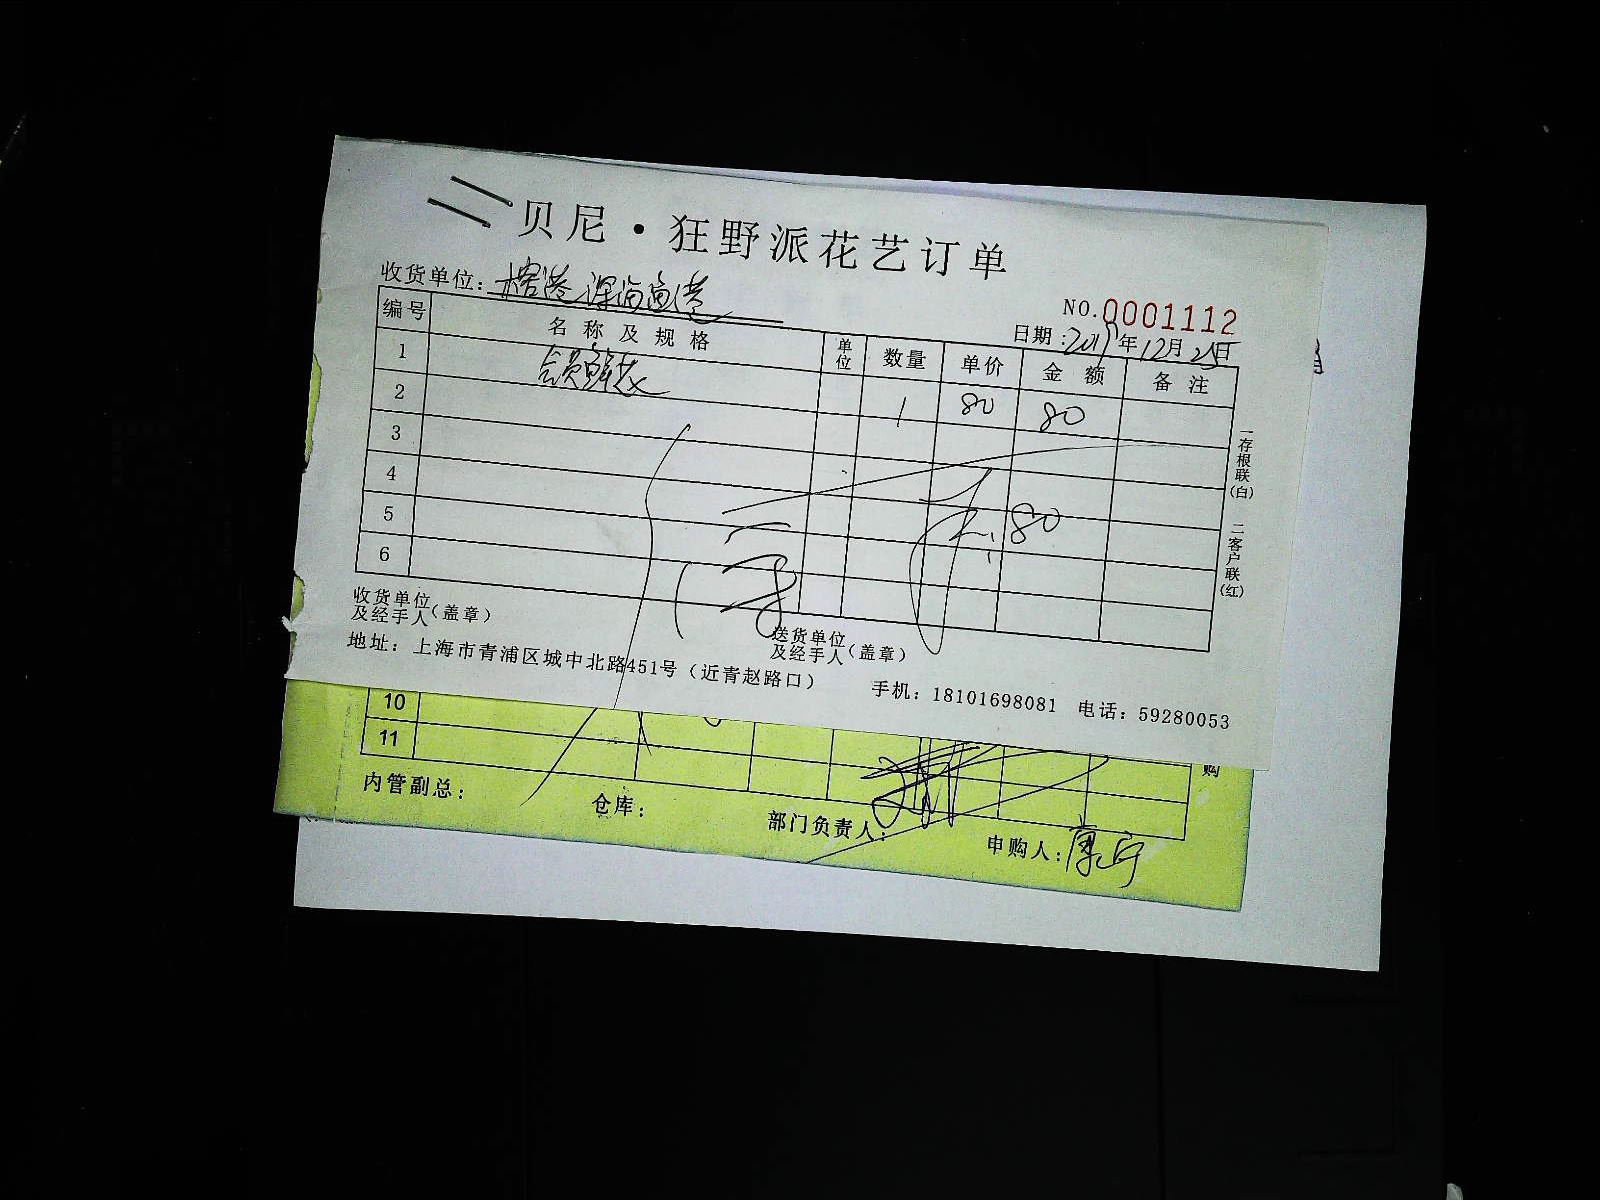 贝尼·狂野派花艺订单
收货单位：
NO.0001112
日期：2019年12月25日
编号 名称及规格 单位 数量 单价 金额 备注
1 会员鲜花 1 80 80
2
3
4
5 80
6
一存根联(白)
二客户联(红)
收货单位及经手人(盖章)
送货单位及经手人(盖章)
地址：上海市青浦区城中北路451号（近青赵路口） 手机：18101698081 电话：59280053
10
11
购
内管副总： 仓库： 部门负责人： 申购人：